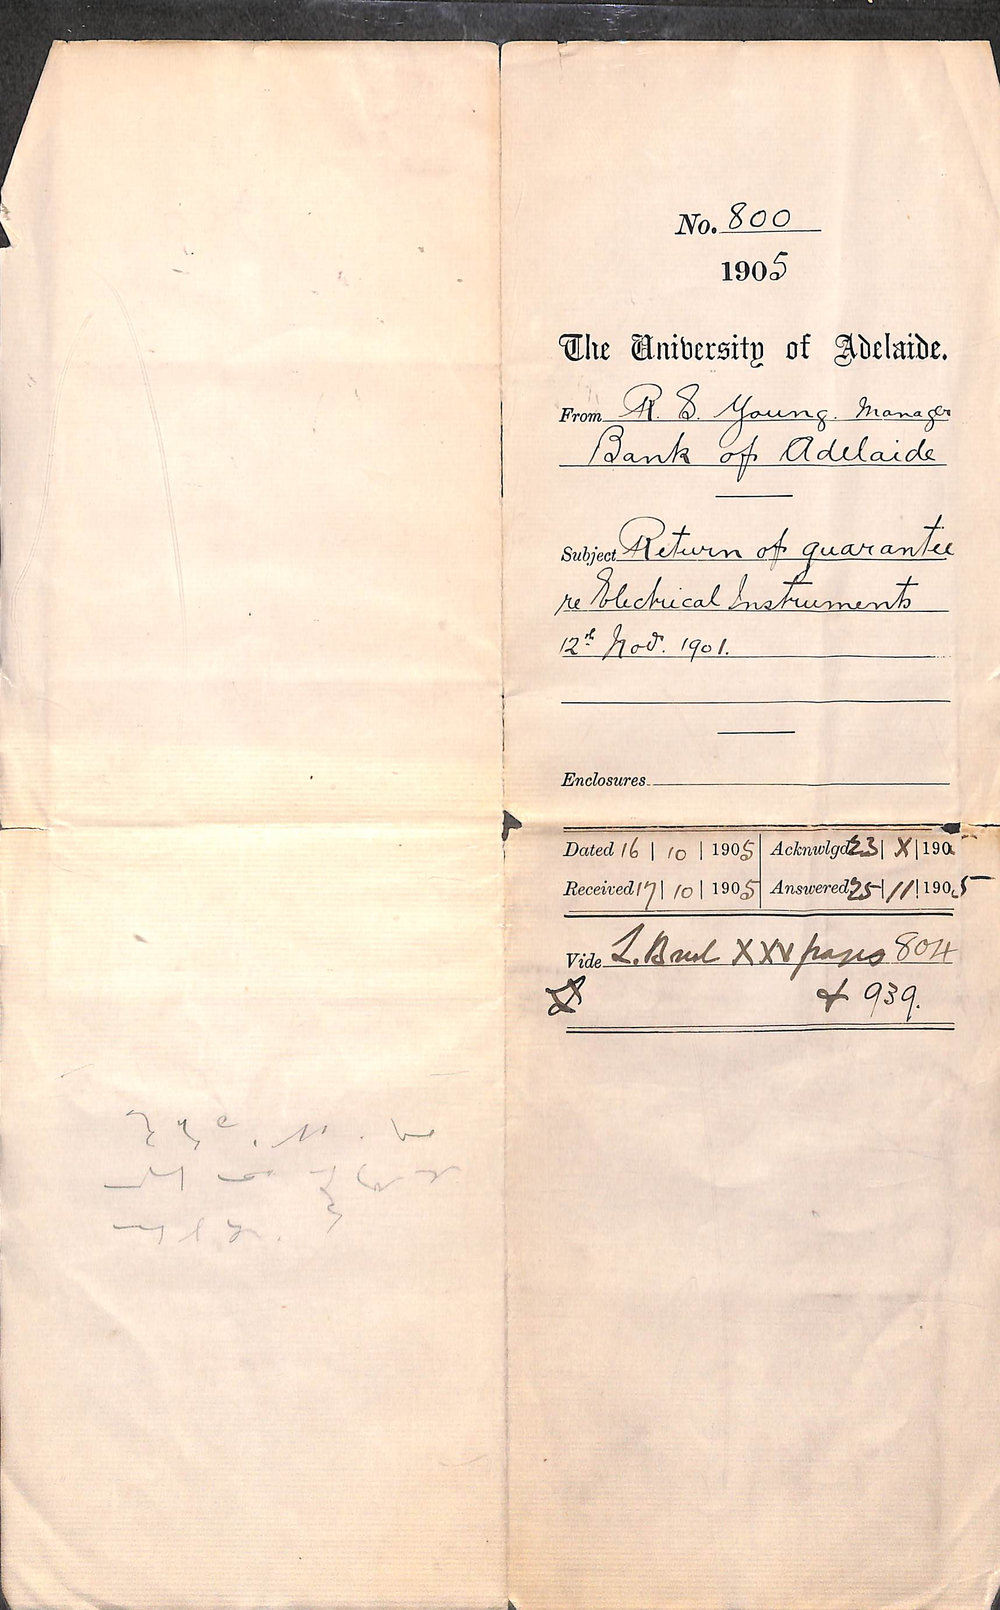 No. 800
1905
The University of Adelaide.
From R. E. Young. Manager
Bank of Adelaide
Subject Return of guarantee
re Electrical Instruments
12th Nov. 1901.
Enclosures
Dated 16 | 10 | 1905 Acknwlgd 23 | X | 190
Received 17 | 10 | 1905 Answered 25 | 11 | 1905
Vide L. Book XXV pages 804
& 939.